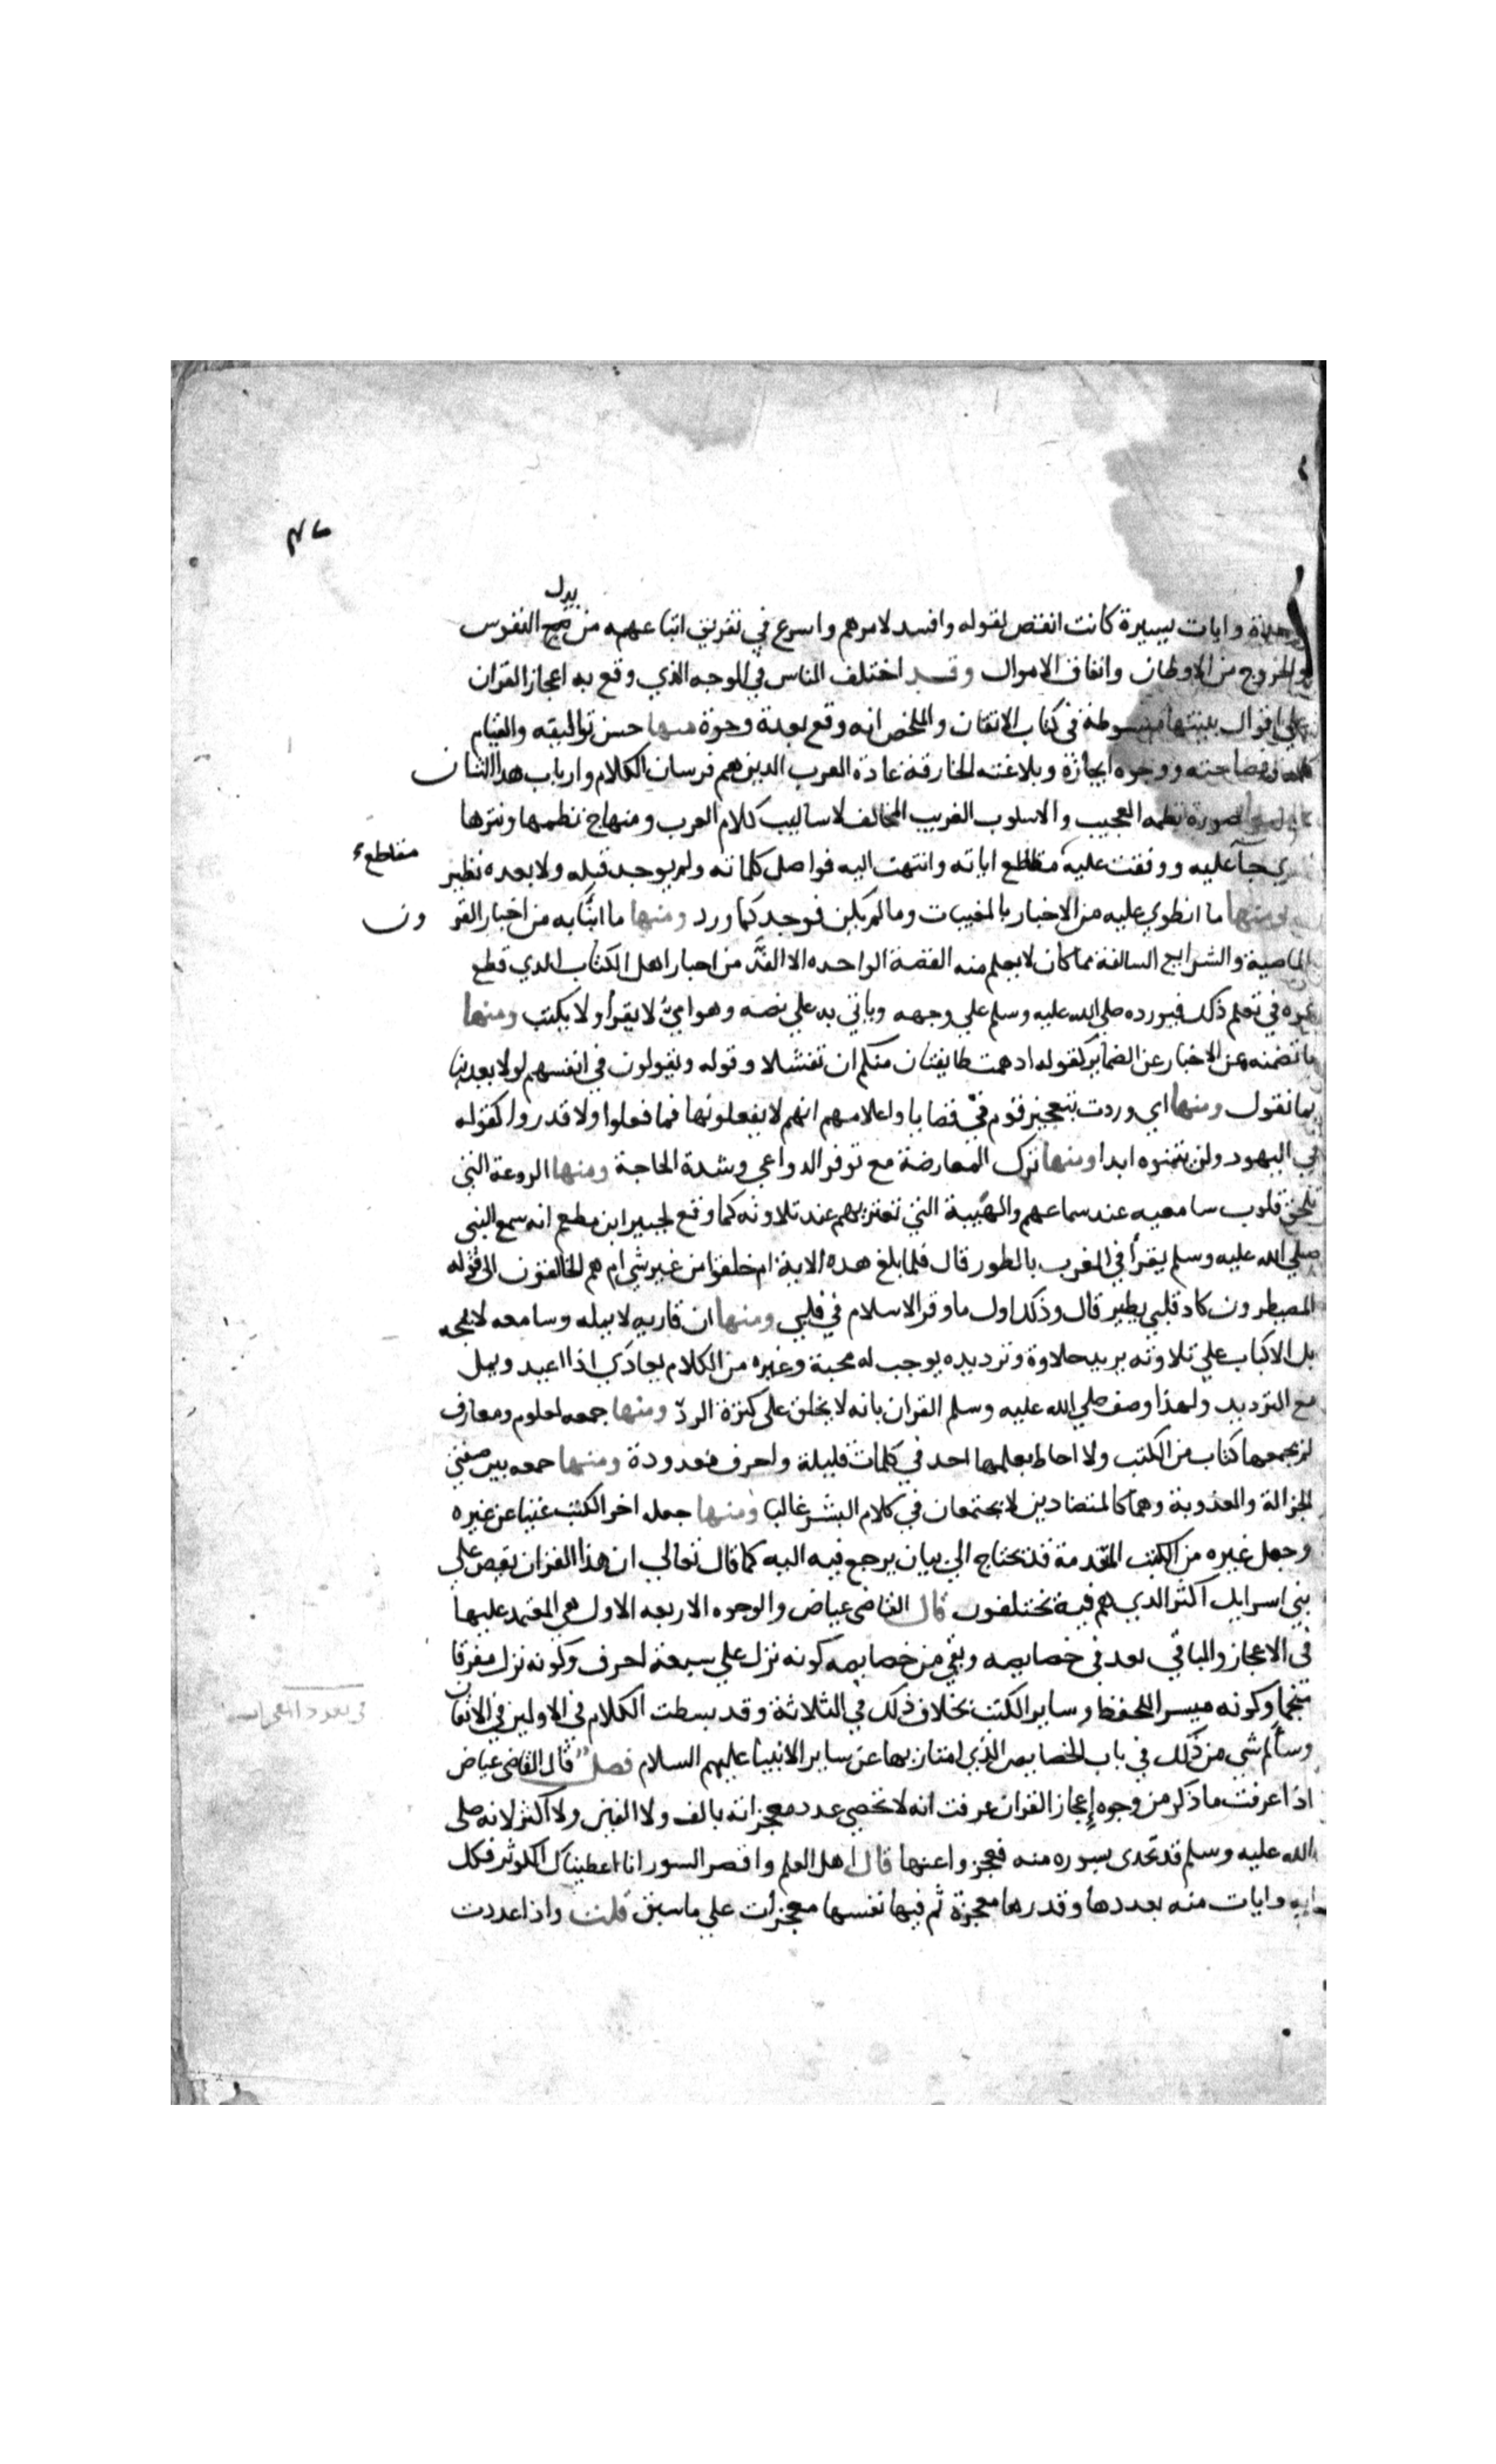 واحدة وايات يسيرة كانت انقض لقوله وافسد لامرهم واسرع في تفريق اتباعهم من بدل النفوس
والخروج من الاوطان وانفاق الاموال وقد اختلف الناس في الوجه الذي وقع به اعجاز القران
علي اقوال بينتها مبسوطة في كتاب الاتقان والملخص انه وقع بعدة وجوة منها حسن تواليفه والتيام
كلمه وفصاحته ووجوه ايجازة وبلاغته الخارقة عادة العرب الدين هم فرسان الكلام وارباب هدا الشان
صورة نظمه العجيب والاسلوب الغريب المخالف لاساليب كلام العرب ومنهاج نظمها ونثرها
الذي جآ عليه ووقفت عليه مقاطع اياته وانتهت اليه فواصل كلماته ولم يوجد قبله ولا بعده نظير
مقاطع
ومنها ما انطوي عليه من الاخبار بالمغيبات وما لم يكن فوجد كما ورد ومنها ما انبأ به من اخبار القرون
الماضية والشرايع السالفة مما كان لا يعلم منه القصة الواحده الا الفذّ من احبار اهل الكتاب الدي قطع
عمره في تعلم ذلك فيورده صلي الله عليه وسلم علي وجهه وياتي به علي نصه وهو اميّ لا يقرأ ولا يكتب ومنها
ما تضمنه من الاخبار عن الضماير كقوله اد همت طايفتان منكم ان تفشلا وقوله ويقولون في انفسهم لولا يعدبنا
بما نقول ومنها اي وردت بتعجيز قوم في قضايا واعلامهم انهم لا يفعلونها فما فعلوا ولا قدروا كقوله
في اليهود ولن يتمنوه ابدا ومنها ترك المعارضة مع توفر الدواعي وشدة الحاجة ومنها الروعة التي
تلحق قلوب سامعيه عند سماعهم والهيبة التي تعتريهم عند تلاوته كما وقع لجبير ابن مطعم انه سمع النبي
صلي الله عليه وسلم يقرأ في المغرب بالطور قال فلما بلغ هده الاية ام خلقوا من غير شي ام هم الخالقون الى قوله
المصيطرون كاد قلبي يطير قال وذلك اول ما وقر الاسلام في قلبي ومنها ان قاريه لا يمله وسامعه لا يمجه
بل الاكباب علي تلاوته يزيد حلاوة وترديده يوجب له محبة وغيره من الكلام يعادي اذا اعيد ويمل
مع الترديد ولهذا وصف صلي الله عليه وسلم القران بانه لا يخلق علي كثرة الردّ ومنها جمعه لعلوم ومعارف
لم يجمعها كتاب من الكتب ولا احاط بعلمها احد في كلمات قليلة واحرف معدودة ومنها جمعه بين صفتي
الجزالة والعذوبة وهما كالمتضادين لا يجتمعان في كلام البشر غالبا ومنها جعله اخر الكتب غنيا عن غيره
وجعل غيره من الكتب المتقدمة قد تحتاج الي بيان يرجع فيه اليه كما قال تعالي ان هذا القران يقص علي
بني اسرايل اكثر الدي هم فية تختلفون قال القاضي عياض والوجوه الاربعه الاول هي المعتمد عليها
في الاعجاز والباقي يعد في خصايصه وبقي من خصايصه كونه نزل علي سبعة احرف وكونه نزل مفرقا
منجما وكونه ميسرا للحفظ وساير الكتب بخلاف ذلك في الثلاثة وقد بسطت الكلام في الاولين في الاتقان
في تعدد المعجزات
وسألم شي من ذلك في باب الخصايص الذي امتاز بها عن ساير الانبيا عليهم السلام فصل قال القاضي عياض
اذا عرفت ما ذكر من وجوه إعجاز القران عرفت انه لا تحصي عدد معجزاته بالف ولا الفين ولا اكثر لانه صلى
الله عليه وسلم قد تحدى بسوره منه فعجزوا عنها قال اهل العلم واقصر السور انا اعطيناك الكوثر فكل
ايه وايات منه بعددها وقدرها معجزة ثم فيها نفسها معجزات علي ما سبق قلت واذا عددت